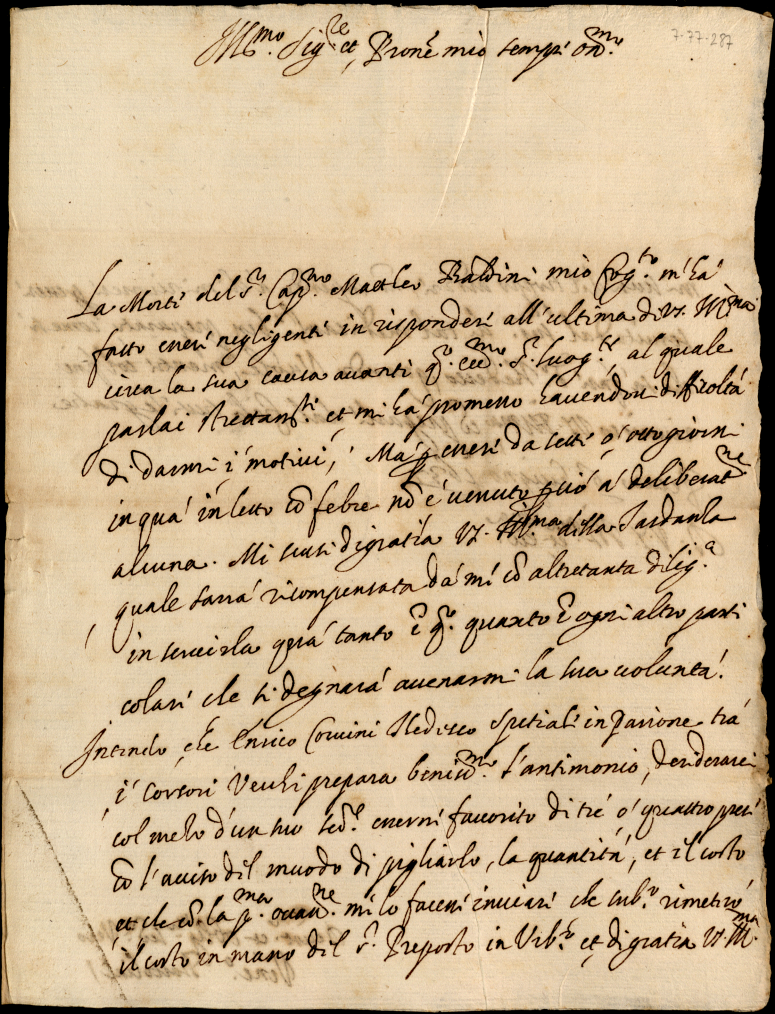 7-77-287
Ill.mo Sig.re et Prone mio semp. oss.mo
La Morte del S.r Cap.no Matteo Baldini mio Cog.to m'ha
fatto essere negligente in rispondere all'ultima di VS. Ill.ma
circa la sua causa avanti q.o ecc.mo S.r luog.te al quale
parlai strettam.te et mi ha promesso havendovi difficoltà
di darmi i motivi, Ma p essere da sette o otto giorni
in qua in letto cō febre nō è venuto più a deliberat.ne
alcuna. Mi scusi di gratia VS. Ill.ma della tardanza
quale sarrà ricompensata da me cō altretanta dilig.a
in servirla quà tanto ī q.o quanto ī ogni altro parti
colare che si degnarà accenarmi la sua voluntà.
Intendo, che Enrico Corvini Tedesco spetiale in Parione trà
i Coronari Vecchi prepara beniss.mo l'antimonio, desiderarei
col mezo d'un suo ser.e essern̄e favorito di tre o quattro prese
cō l'aviso del muodo di pigliarlo, la quantità, et il costo
et che cō la p.ma occas.ne mi lo facesse inviare che sub.o rimetirò
il costo in mano del S.r Preposto in Urb.o et di gratia VS. Ill.ma